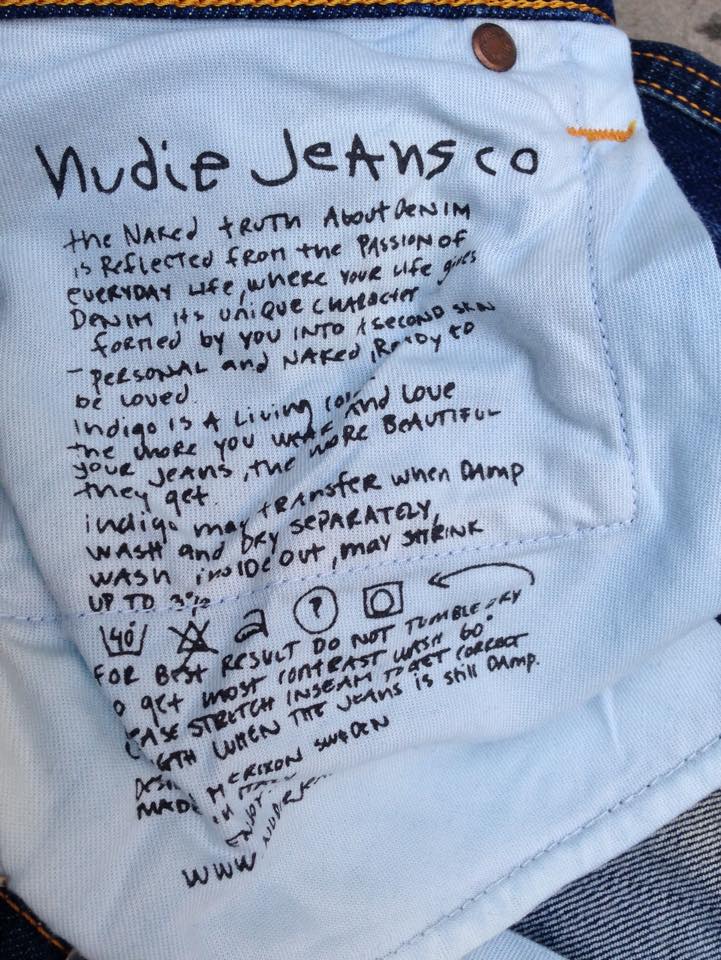 nudie Jeans co
the NAKed tRUTH About DENIM
is Reflected from the PASSION of
EVERYDAY Life, where your life gives
DENIM its unique CHARACter
formed by you INTO A SECOND SKIN
- PERSONAL and NAKED, Ready to
be Loved.
Indigo is A Living and Love
the more you WEAR
your JEANS, the MORE BEAUTIFUL
they get.
indigo may tRANSFER when DAMP
WASH and DRY SEPARATELY,
WASH inSIDE out, may SHRINK
UP TO 3%
40°
FOR BEST RESULT DO NOT TUMBLE DRY
get most CONTRAST WASH 60°
STRETCH INSEAM TO GET CORRECT
WHEN THE JEANS is still DAMP.
M ERIXON SWEDEN
MADE IN
WWW